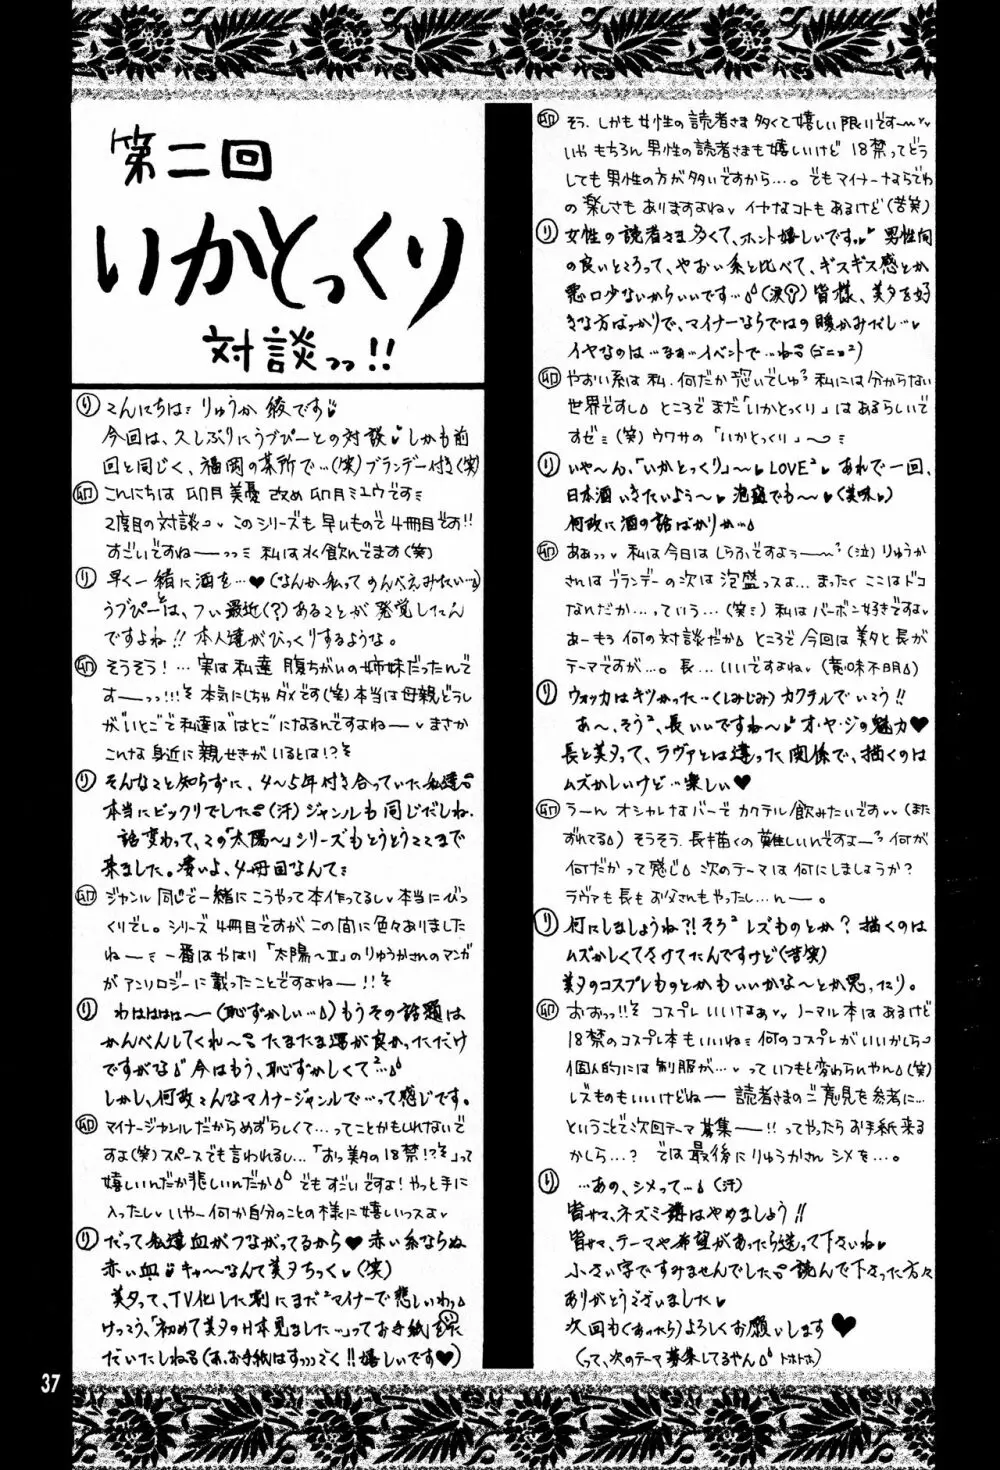 第二回
いかとっくり
対談っっ!!
り こんにちは りゅうか 綾です
今回は、久しぶりにうブぴーとの対談 しかも前
回と同じく、福岡の某所で…(笑)ブランデー付き(笑)
卯 こんにちは 卯月美憂 改め 卯月ミユウです
2度目の対談 このシリーズも早いもので4冊目です!!
すごいですねーっっ 私は水飲んでます(笑)
り 早く一緒に酒を…♥(なんか私って のんべえみたい…)
うブぴーとは、つい最近(?)あることが発覚したん
ですよね!!本人達がびっくりするような。
卯 そうそう!…実は私達 腹ちがいの姉妹だったんで
すーっっ!!! 本気にしちゃダメです(笑)本当は母親どうし
が"いとこ"で私達は"はとこ"になるんですよねー まさか
こんな身近に親せきがいるとは!?
り そんなこと知らずに、4〜5年付き合っていた私達
本当にビックリでした(汗)ジャンルも同じだしね。
話変わって、この「太陽〜」シリーズもとうとうここまで
来ました。凄いよ、4冊目なんて
卯 ジャンル同じで一緒にこうやって本作ってるし 本当にびっ
くりでし。シリーズ4冊目ですがこの間に色々ありました
ねー 一番はやはり「太陽〜Ⅱ」のりゅうかさんのマンガ
がアンソロジーに載ったことですよねー!!
り わはははー(恥ずかしい…)もうその話題は
かんべんしてくれ〜 たまたま運が良かっただけ
ですがな 今はもう、恥ずかしくて…
しかし、何故こんなマイナージャンルで…って感じです。
卯 マイナージャンルだからめずらしくて…ってことかもしれないで
すよ(笑)スペースでも言われるし…「おっ美夕の18禁!?」って
嬉しいんだか悲しいんだか でもすごいですよ!やっと手に
入ったし いやー何か自分のことの様に嬉しいっスよ
り だって私達血がつながってるから♥赤い糸ならぬ
赤い血 キャ〜なんて美夕ちっく(笑)
美夕って、TV化した割にまだマイナーで悲しいわっ
けっこう、「初めて美夕のH本見ました…」ってお手紙をいた
だいたしね(あ、お手紙はすっっごく!!嬉しいです♥)
卯 そう、しかも女性の読者さま多くて嬉しい限りです〜
いや もちろん男性の読者さまも嬉しいけど 18禁ってどう
しても男性の方が多いですから…。でもマイナーならでわ
の楽しさもありますよね イヤなコトもあるけど(苦笑)
り 女性の読者さま多くて、ホント嬉しいです 男性向
の良いところって、やおい系と比べて、ギスギス感とか
悪口少ないからいいです…(涙) 皆様、美夕を好
きな方ばっかりで、マイナーならではの暖かみだし…
イヤなのは…なぁ…イベントで…ね(ゴニョ²)
卯 やおい系は私、何だか恐いでしゅ 私には分からない
世界ですし ところでまだ「いかとっくり」はあるらしいで
すゼ(笑)ウワサの「いかとっくり」〜
り いや〜ん、「いかとっくり」〜 LOVE² あれで一回、
日本酒いきたいよう〜 泡盛でも〜(美味)
何故に酒の話ばかりか…
卯 あぁっっ 私は今日はしらふですよぅー(泣)りゅうか
さんはブランデーの次は泡盛っスよ…まったくここはドコ
なんだか…っていう…(笑)私はバーボン好きですよ
あーもう何の対談だか ところで今回は美夕と長が
テーマですが…。長…いいですよね(意味不明)
り ウォッカはキツかった…(しみじみ)カクテルでいこう!!
あ〜、そう²、長いいですね〜 オ・ヤ・ジの魅力♥
長と美夕って、ラヴァとは違った関係で、描くのは
ムズかしいけど…楽しい♥
卯 うーん オシャレなバーでカクテル飲みたいです(また
ずれてる)そうそう、長描くの難しいんですよー 何が
何だかって感じ 次のテーマは何にしましょうか?
ラヴァも長もお父さんもやったし…んー。
り 何にしましょうね?!そう² レズものとか?描くのは
ムズかしくてさけてたんですけど(苦笑)
美夕のコスプレものとかもいいかな〜とか思ったり。
卯 おぉっっ!! コスプレいいなぁ ノーマル本はあるけど
18禁のコスプレ本もいいね 何のコスプレがいいかしら
個人的には制服が… っていつもと変わらんやん(笑)
レズものもいいけどねー 読者さまのご意見を参考に…
ということで次回テーマ募集ー!!ってやったらお手紙来る
かしら…? では最後にりゅうかさん シメを…。
り …あの、シメって…(汗)
皆サマ、ネズミ講はやめましょう!!
皆サマ、テーマや希望があったら送って下さいね
小さい字ですみませんでした 読んで下さった方々
ありがとうございました
次回も(あったら)よろしくお願いします♥
(って、次のテーマ募集してるやん トホホ)
37